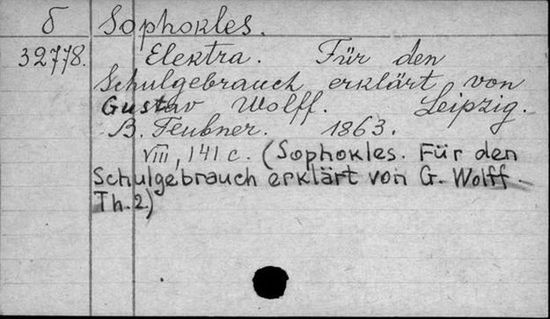 б Sophokles.
32778. Elektra. Für den
Schulgebrauch erklärt von
Gustav Wolff. Leipzig.
B. Teubner. 1863.
VIII, 141 c. (Sophokles. Für den
Schulgebrauch erklärt von G. Wolff.
Th. 2.)